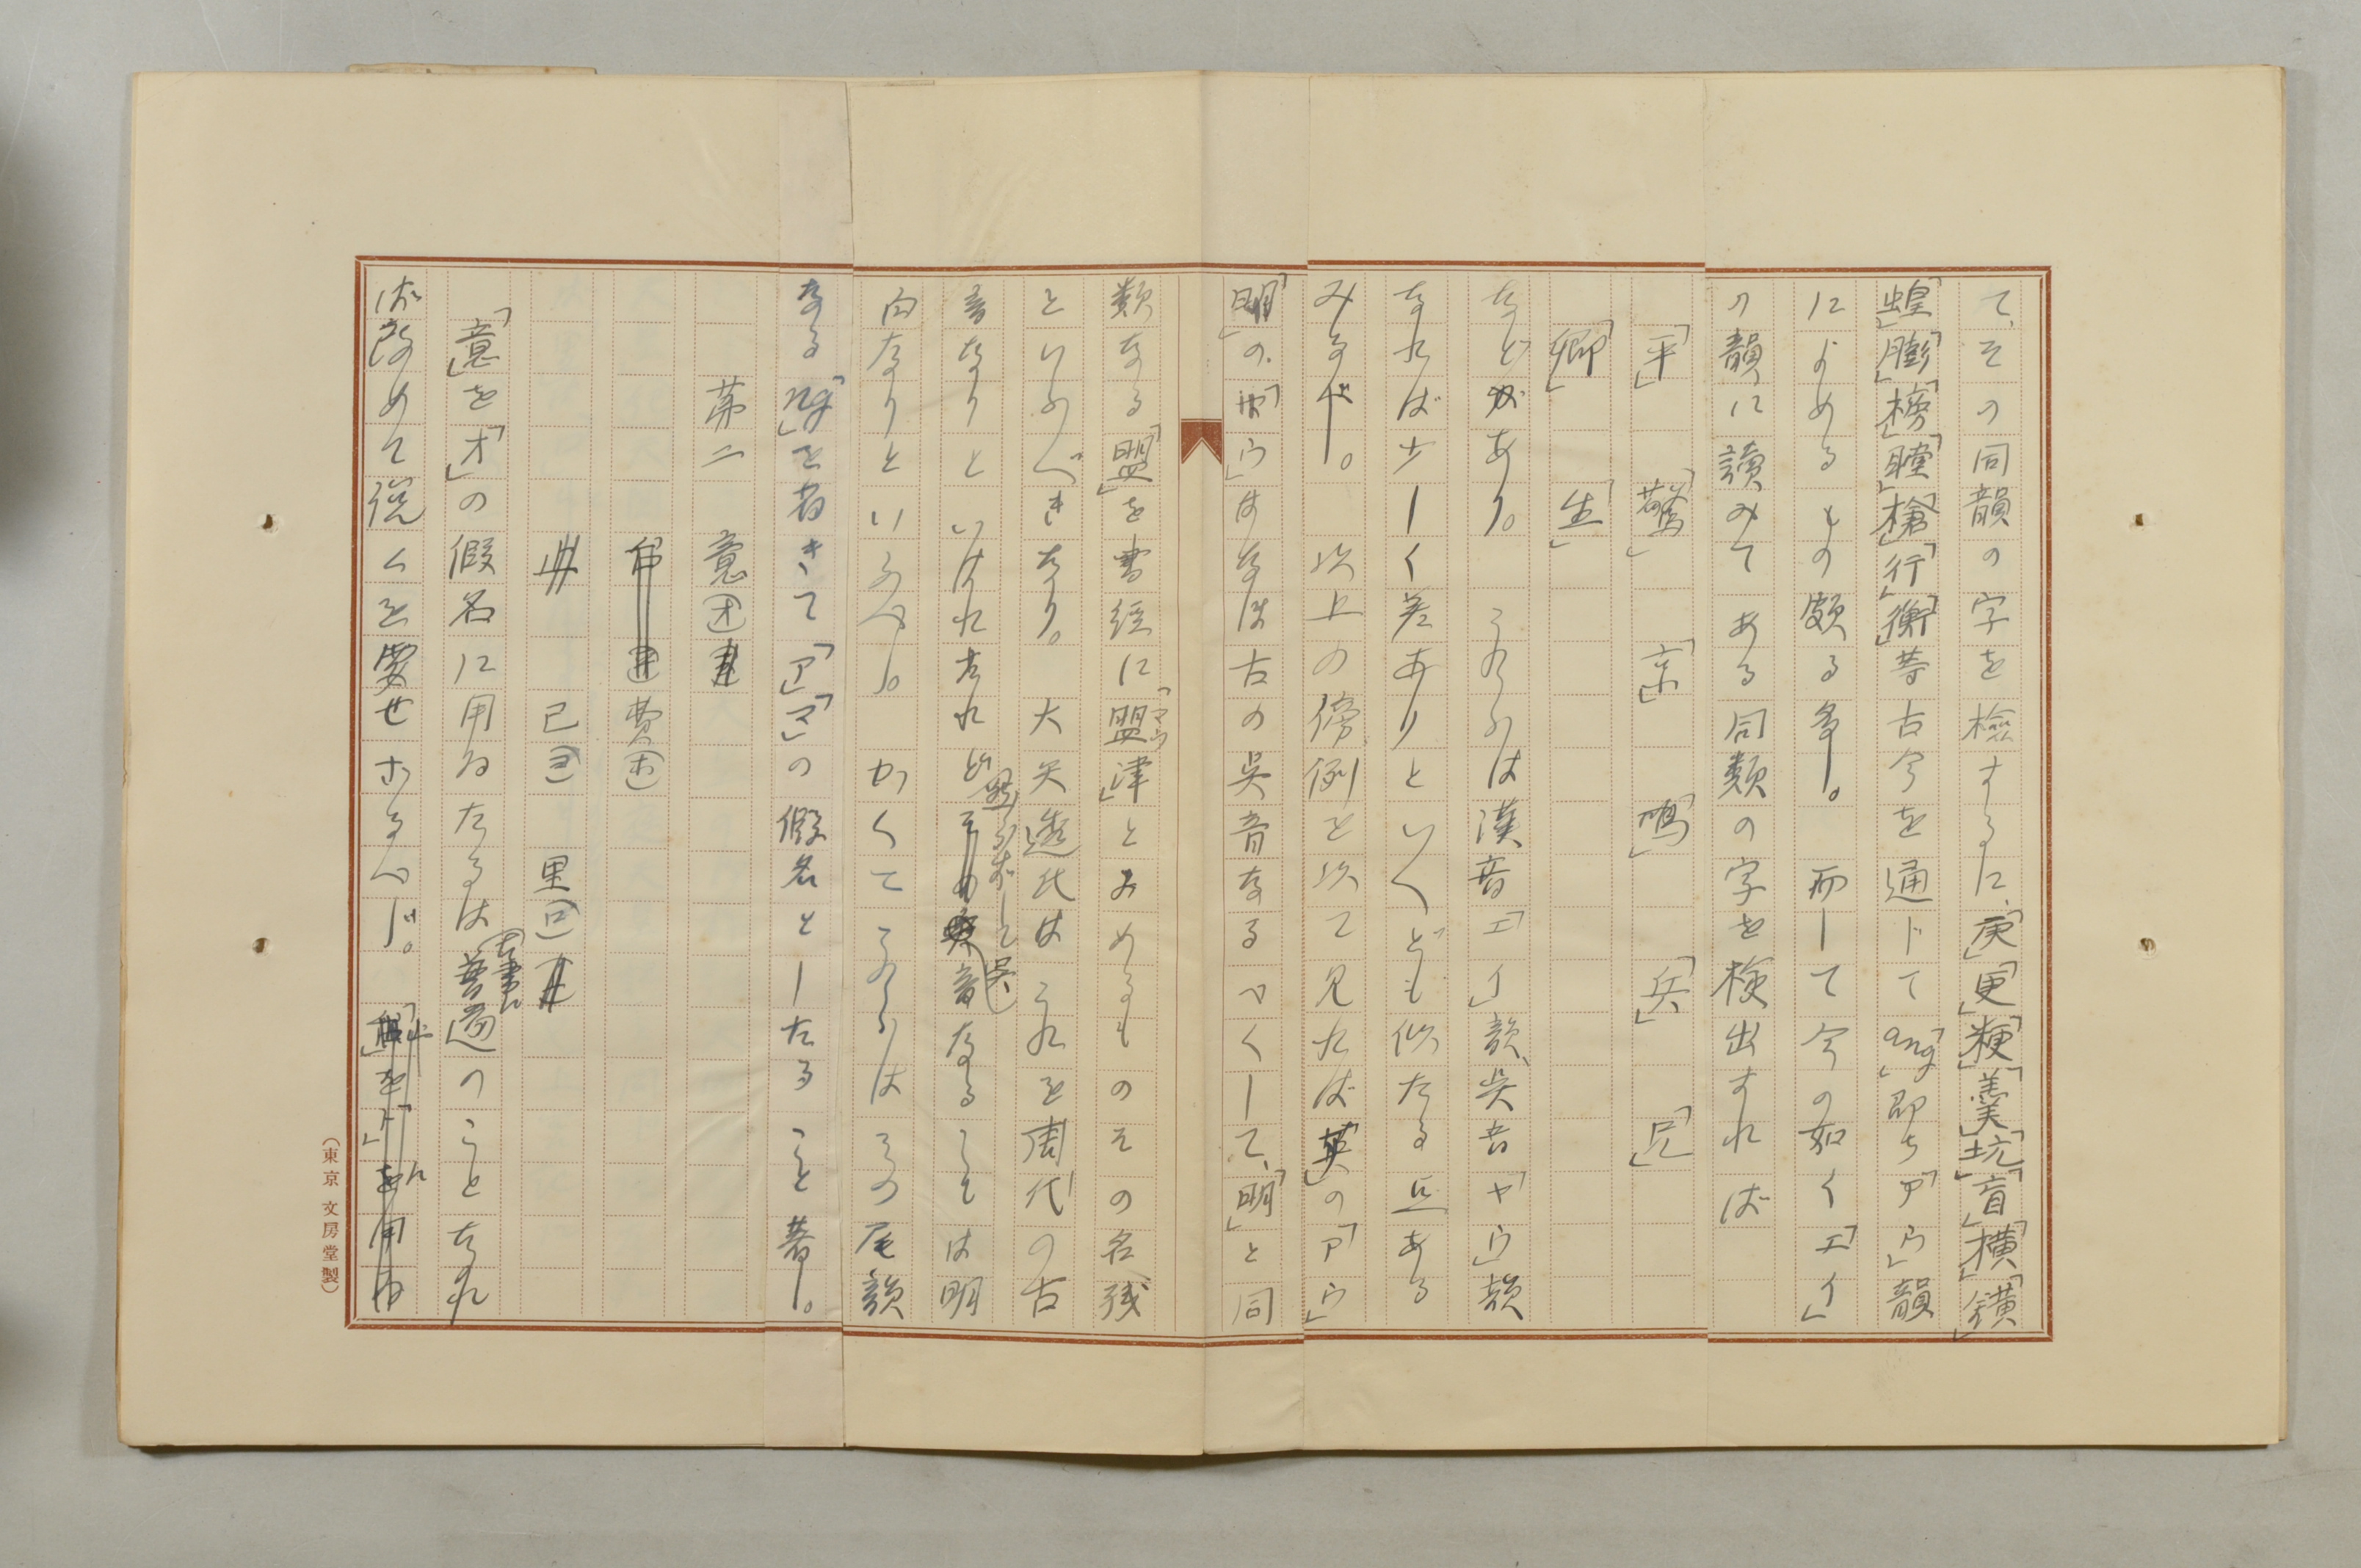 て、その同韻の字を檢するに、「庚」「更」「粳」「羹」「坑」「盲」「横」「鐄」
「蝗」「膨」「榜」「瞠」「槍」「行」「衡」等古今を通ドて「ang」即ち「アウ」韻
によめるもの頗る多し。而して今の如く「エイ」
の韻に讀みてある同類の字を檢出すれば
「平」「驚」「京」「鳴」「兵」「兄」
「卿」「生」
などあり。これらは漢音「エイ」韻、呉音「ヤウ」韻
なれば少しく差ありといへども似たる点ある
みるべし。以上の傍例を以て見れば「英」の「アウ」
「明」の「マウ」はなほ古の呉音なるべくして、「明」と同
類なる「盟」を書經に「盟津」とよめるもその名残
マウ
といふべきなり。大矢透氏はこれを周代の古
音なりといはれたれど然らずして呉音なることは明
白なりといふべし。かくてこれらはその尾韻
なる「ng」を省きて「ア」「マ」の假名としたること著し。
第二 意(オ)
費(ホ)
已(ヨ) 里(ロ)
「意」を「オ」の假名に用ゐたるは普通のことなれ
ば改めて説くを要せざるべし。
(東京 文房堂製)